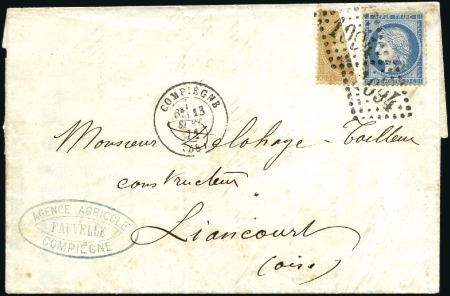 RÉPUB. FRANC.
1094
1094
COMPIÈGNE
13
(58)
Monsieur Delahaye-Tailleur
constructeur
Liancourt
(oise)
AGENCE AGRICOLE
FAUVELLE
COMPIÈGNE